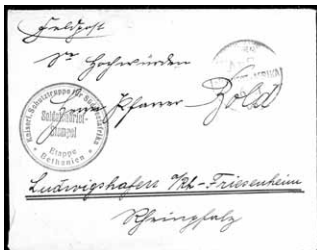 Feldpost
Sr Hochwürden
Herrn Pfarrer Bold
Kaiserl. Schutztruppe für Südwestafrika
Soldatenbrief-
Stempel
Etappe
Bethanien
Ludwigshafen a/Rh.-Friesenheim
Rheinpfalz